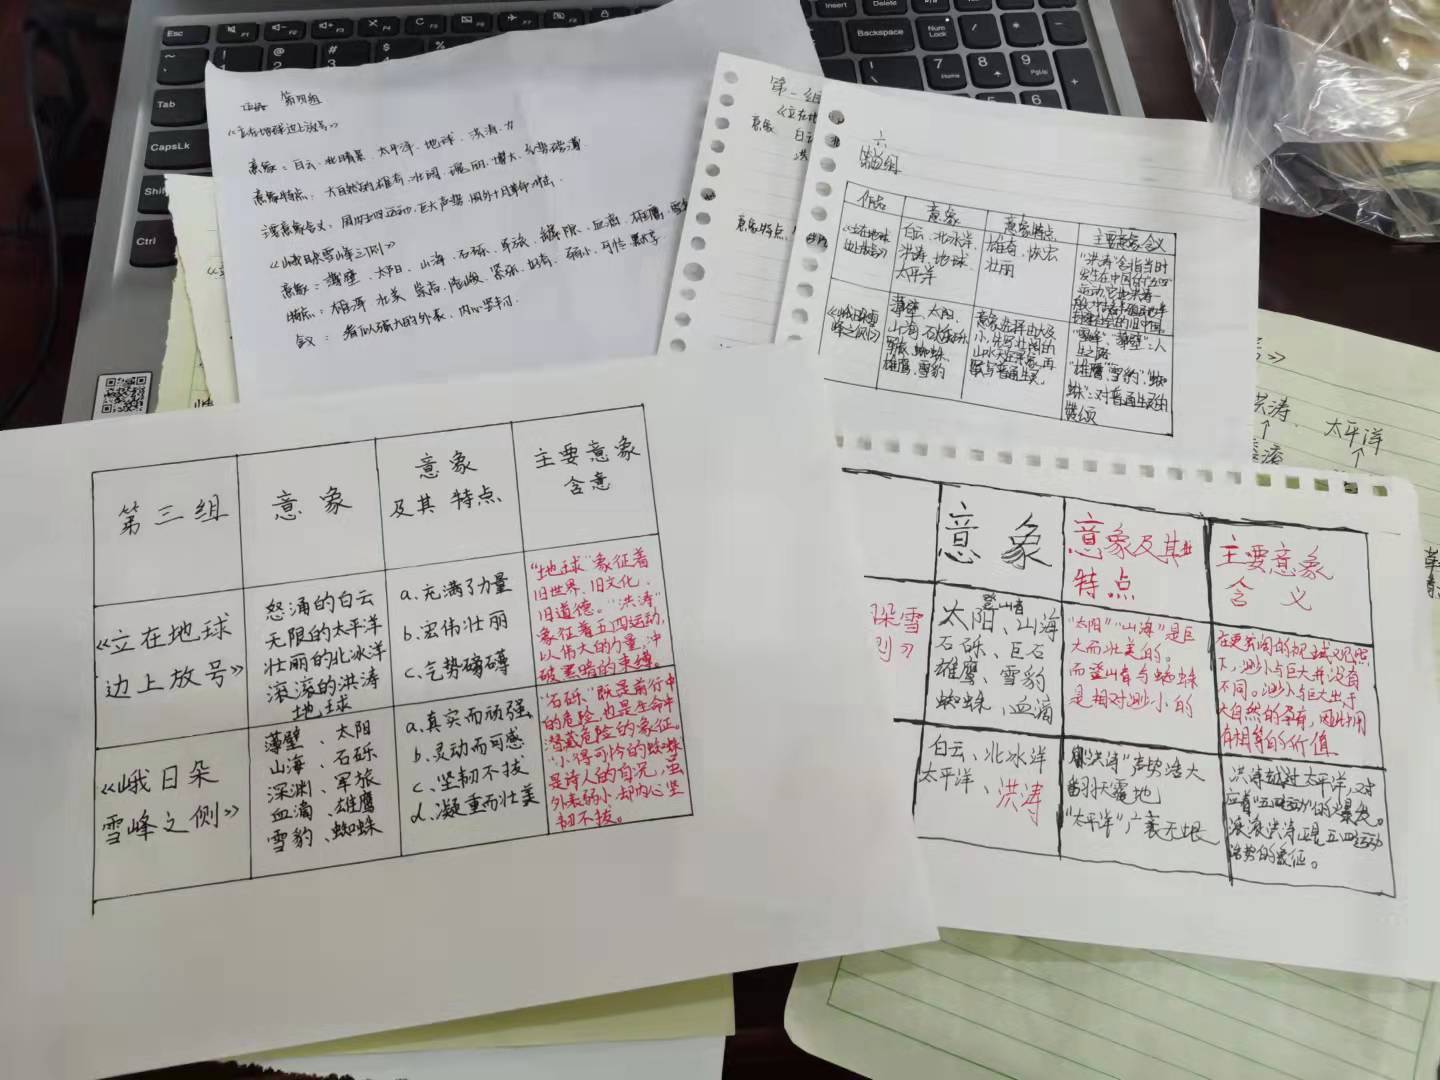 第四组
《立在地球边上放号》
意象：白云、北冰洋、太平洋、地球、洪涛、力
意象特点：大自然的雄奇、壮阔、瑰丽、博大、气势磅礴
《峨日朵雪峰之侧》
意象：薄壁、太阳、山海、石砾、军旅、深渊、血滴、雄鹰、雪
特点：雄浑 壮美
含义：看似强大的外表，内心坚韧.
第一组
《立在地
意象 白云
洪
意象特点
六
第 组
作品
意象
意象特点
主要意象含义
《立在地球
边上放号》
白云、北冰洋、
洪涛、地球、
太平洋
雄奇、恢宏
壮丽
"洪涛"包指当时
发生在中国的"五四
《峨日朵雪
峰之侧》
薄壁、太阳、
山海、石砾
军旅、蜘蛛、
雄鹰、雪豹
意象选择由大及
"雪峰""薄壁"：人
生之路
"雄鹰""雪豹""蜘
蛛"：对普通生灵的
赞颂
洪涛
太平洋
第三组
意象
意象
及其特点
主要意象
含意
《立在地球
边上放号》
怒涌的白云
无限的太平洋
壮丽的北冰洋
滚滚的洪涛
地球
a.充满了力量
b.宏伟壮丽
c.气势磅礴
"地球"象征着
旧世界、旧文化、
旧道德。"洪涛"
象征着五四运动，
以伟大的力量，冲
破黑暗的束缚。
《峨日朵
雪峰之侧》
薄壁、太阳
山海、石砾
深渊、军旅
血滴、雄鹰
雪豹、蜘蛛
a.真实而顽强
b.灵动而可感
c.坚韧不拔
d.凝重而壮美
"石砾"既是前行中
的危险，也是生命中
潜藏危险的象征。
"小得可怜的蜘蛛"
是诗人的自况，虽
外表弱小，却内心坚
韧不拔。
意象
意象及其
特点
主要意象
含义
朵雪
侧》
登山者
太阳、山海
石砾、巨石
雄鹰、雪豹
蜘蛛、血滴
"太阳""山海"是巨
大而壮美的。
而登山者与蜘蛛
是相对渺小的
在更广阔的视域观照
下，渺小与巨大并没有
不同。渺小与巨大出于
大自然的孕育，因此拥
有相等的价值
白云、北冰洋
太平洋、洪涛
"洪涛"声势浩大
翻天覆地
"太平洋"广袤无垠
洪涛越过太平洋，对
应着"五四运动"的爆发。
滚滚洪涛正是五四运动
浩势的象征。
Esc
Tab
CapsLk
Shift
Ctrl
Insert
Delete
Backspace
Num
Lock
7
Home
8
9
PgUp
4
5
6